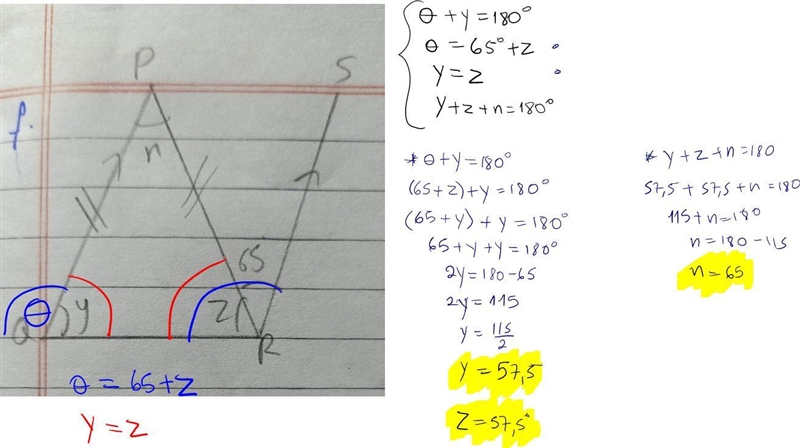 P
S
f.
n
65
θ
y
z
Q
R
θ = 65+z
y = z
θ + y = 180°
θ = 65° + z
y = z
y + z + n = 180°
* θ + y = 180°
(65+z) + y = 180°
(65+y) + y = 180°
65 + y + y = 180°
2y = 180 - 65
2y = 115
y = 115/2
y = 57,5
z = 57,5°
* y + z + n = 180
57,5 + 57,5 + n = 180
115 + n = 180
n = 180 - 115
n = 65